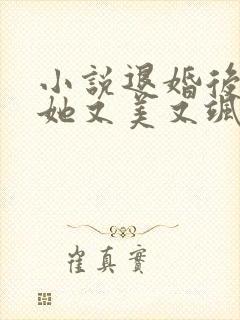 小說退婚後
她又美又颯
崔真實